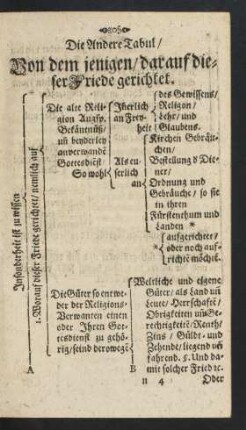 ❧806☙
Die Andere Tabul/
Von dem jenigen/darauf die-
ser Friede gerichtet.
Insonderheit ist zu wissen
1. Worauf dieser Friede gerichtet/ nemlich auf
Die alte Reli-
gion Augsp.
Bekäntnüß/
uñ beyderley
anverwandt
Gottesdiest
So wohl
Iñerlich
an Frey-
heit
des Gewissens/
Religion/
Lehr/ und
Glaubens.
Als eu-
serlich
an
Kirchen Gebräu-
chen/
Bestellung d' Die-
ner/
Ordnung und
Gebräuche/ so sie
in ihren
Fürstenthum und
Landen
aufgerichtet/
oder noch auf-
richtē möchtē.
Die Güter so entwe-
der der Religions-
Verwanten einen
oder Ihren Got-
tesdienst zu gehö-
rig/ seind derowegē
Weltliche und eigene
Güter/ als Land uñ
Leute/ Herrschafft/
Obrigkeiten uñ Ge-
rechtigkeit/ Renth/
Zins/ Gülde- und
Zehende/ liegend uñ
fahrend. §. Und da-
mit solcher Fried rc.
A
B
n 4 Oder